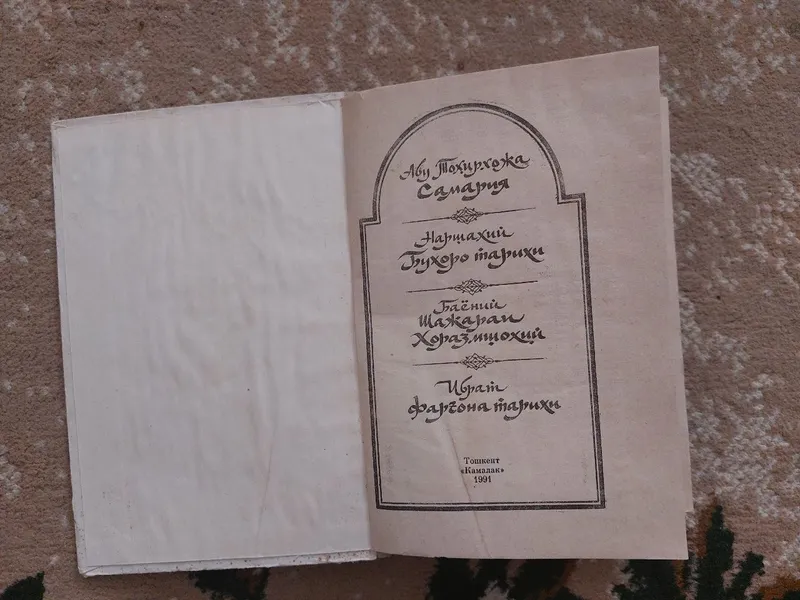 Абу Тохирхожа
Самария
Наршахий
Бухоро тарихи
Баёний
Шажараи
Хоразмшохий
Ибрат
Фарғона тарихи
Тошкент
«Камалак»
1991